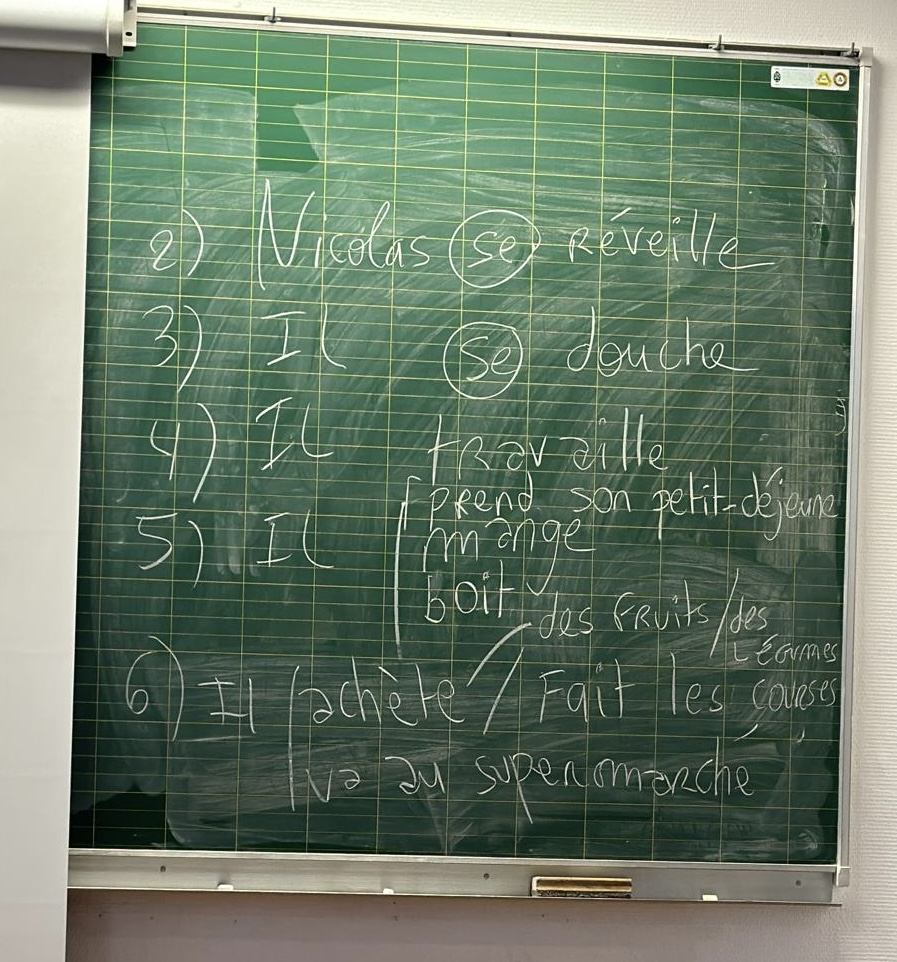 2) Nicolas se réveille
3) Il se douche
4) Il travaille
prend son petit-déjeune
5) Il mange
boit
des fruits / des
légumes
6) Il achète / Fait les courses
va au supermarché